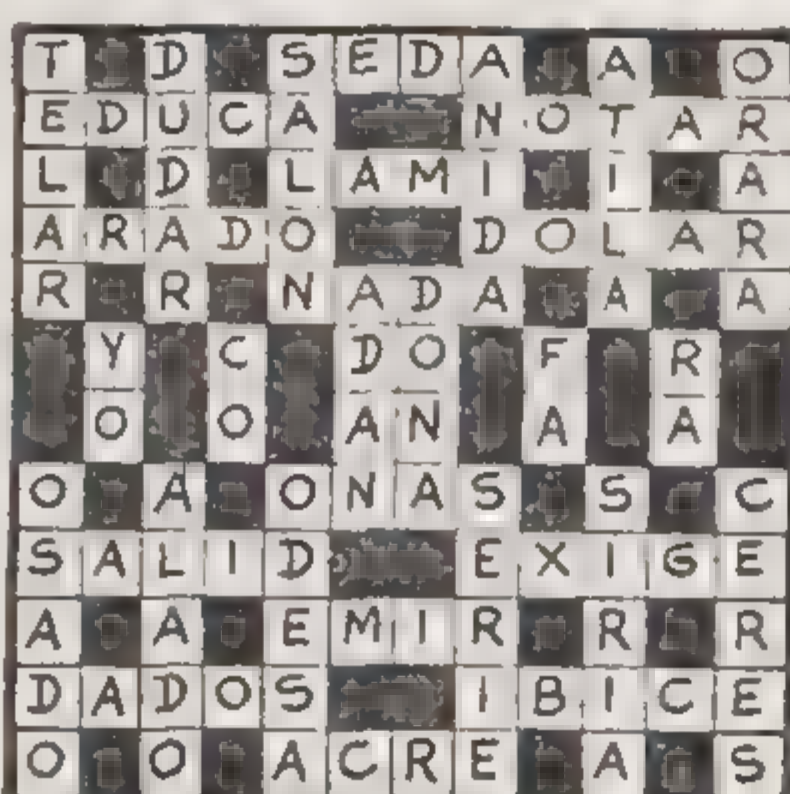 T D SEDA A O
EDUCA NOTAR
L D LAMI I A
ARADO DOLAR
R R NADA A A
Y C DO F R
O O AN A A
O A ONAS S C
SALID EXIGE
A A EMIR R R
DADOS IBICE
O O ACRE A S